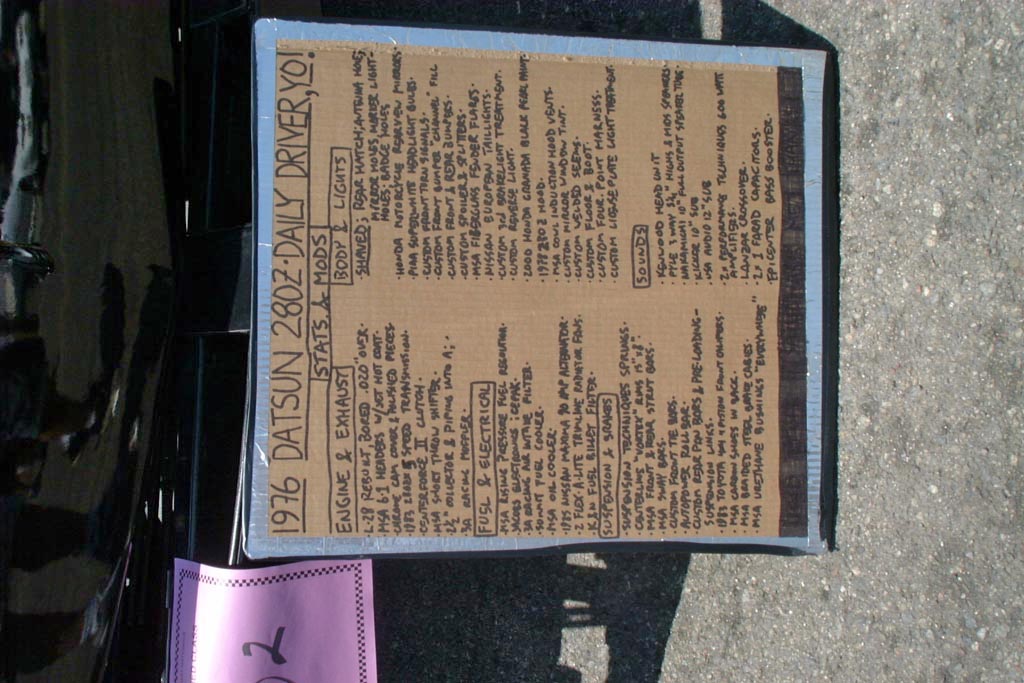 1976 DATSUN 280Z·DAILY DRIVER, YO!
STATS & MODS
ENGINE & EXHAUST
L-28 REBUILT BORED .020" OVER
MSA 6-1 HEADERS W/JET HOT COAT.
CHROME CAM COVER & POLISHED PIECES
1983 5 SPEED TRANSMISSION.
CENTERFORCE II CLUTCH.
MSA SHORT THROW SHIFTER.
COLLECTOR & PIPING INTO A;
3A RACING MUFFLER.
FUEL & ELECTRICAL
MSA RISING PRESSURE FUEL REGULATOR.
JACOBS ELECTRONICS
3A RACING AIR INTAKE FILTER.
FUEL COOLER.
MSA OIL COOLER.
NISSAN MAXIMA 90 AMP ALTERNATOR.
2 FLEX-A-LITE TRIMLINE RADIATOR FANS.
K&N FUEL FILTER.
SUSPENSION & BRAKES
SUSPENSION TECHNIQUES SPRINGS.
CENTERLINE "VORTEX" RIMS 15"x8"
MSA FRONT & REAR STRUT BARS.
MSA SWAY BARS.
CUSTOM FRONT TIE BARS.
AUTOPOWER ROLL BAR.
CUSTOM REAR PAN BARS & PRE-LOADING-
SUSPENSION LINKS.
1983 TOYOTA 4X4 4 PISTON FRONT CALIPERS.
MSA CARBON SHOES IN BACK.
MSA BRAIDED STEEL BRAKE CABLES.
MSA URETHANE BUSHINGS "EVERYWHERE"
BODY & LIGHTS
SHAVED; REAR HATCH; ANTENNA HOLE;
MIRROR HOLES; MARKER LIGHT-
HOLES; BADGE HOLES
·HONDA MOTORCYCLE REARVIEW MIRRORS.
·PIAA SUPERWHITE HEADLIGHT BULBS.
·CUSTOM FRONT TURN SIGNALS.
·CUSTOM FRONT BUMPER CHANNEL FILL
·CUSTOM FRONT & REAR BUMPERS.
·CUSTOM SPOILER & SPLITTERS.
·MSA FIBERGLASS FENDER FLARES.
·NISSAN EUROPEAN TAILLIGHTS.
·CUSTOM 3RD BRAKELIGHT TREATMENT.
·CUSTOM REVERSE LIGHT.
·2000 HONDA GRANADA BLACK PEARL PAINT.
·1978 280Z HOOD.
·MSA COWL INDUCTION HOOD VENTS.
·CUSTOM MIRROR WINDOW TINT.
·CUSTOM WELDED SEEMS.
·CUSTOM FLOOR & BOOT.
·CUSTOM FOUR POINT HARNESS.
·CUSTOM LICENSE PLATE LIGHT TREATMENT.
SOUNDS
·KENWOOD HEAD UNIT
·PYLE 3 WAY HIGHS & MIDS SPEAKERS
10" FULL OUTPUT SPEAKER TUBE.
·KICKER 10" SUB
·USA AUDIO 12" SUB
·2x PERFORMANCE TECHNIQUES 600 WATT
AMPLIFIERS.
CROSSOVER.
·2x 1 FARAD CAPACITORS.
·EPICENTER BASS BOOSTER.
2